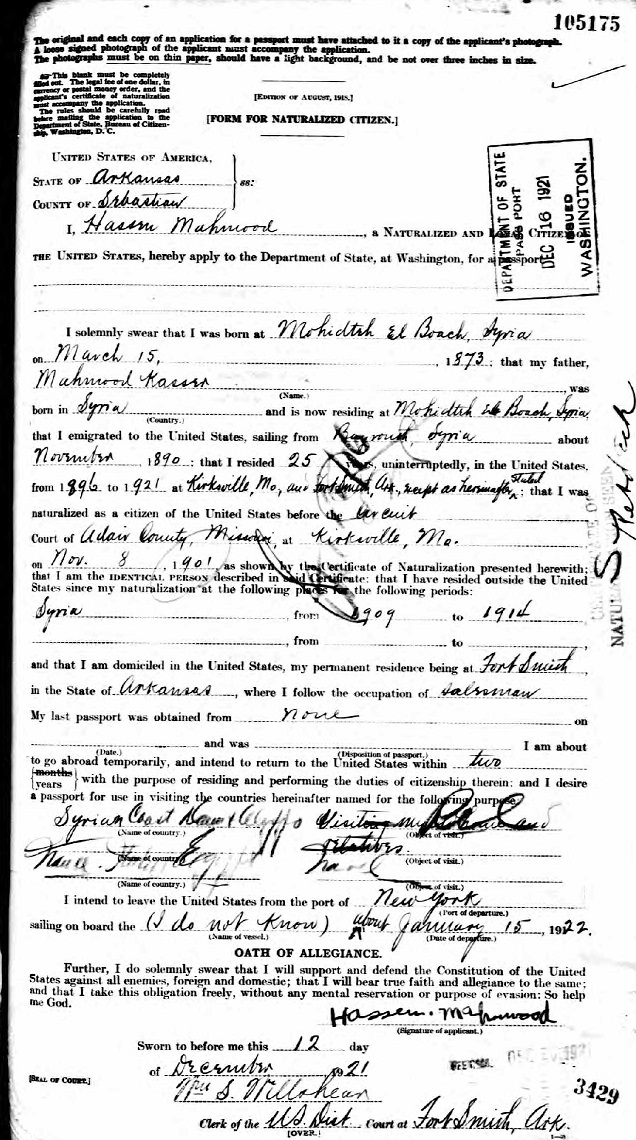 105175
The original and each copy of an application for a passport must have attached to it a copy of the applicant's photograph.
A loose signed photograph of the applicant must accompany the application.
The photographs must be on thin paper, should have a light background, and be not over three inches in size.
This blank must be completely
filled out. The legal fee of one dollar, in
currency or postal money order, and the
applicant's certificate of naturalization
must accompany the application.
The rules should be carefully read
before mailing the application to the
Department of State, Bureau of Citizen-
ship, Washington, D. C.
[EDITION OF AUGUST, 1918.]
[FORM FOR NATURALIZED CITIZEN.]
UNITED STATES OF AMERICA,
STATE OF Arkansas
ss:
COUNTY OF Sebastian
DEPARTMENT OF STATE
PASSPORT
DEC 16 1921
ISSUED
WASHINGTON.
I, Hassen Mahmood, a NATURALIZED AND LOYAL CITIZEN OF
THE UNITED STATES, hereby apply to the Department of State, at Washington, for a passport
I solemnly swear that I was born at Mohidtsh El Boach, Syria
on March 15, 1873; that my father,
Mahmood Kasser, was
(Name.)
born in Syria and is now residing at Mohidtsh El Boach, Syria
(Country.)
that I emigrated to the United States, sailing from Bayrouth, Syria about
November 1890; that I resided 25 years, uninterruptedly, in the United States,
from 1896 to 1921 at Kirksville, Mo, and Fort Smith, Ark., except as hereinafter stated; that I was
naturalized as a citizen of the United States before the Circuit
Court of Adair County, Missouri, at Kirksville, Mo.
on Nov. 8, 1901, as shown by the Certificate of Naturalization presented herewith;
that I am the IDENTICAL PERSON described in said Certificate; that I have resided outside the United
States since my naturalization at the following places for the following periods:
Syria from 1909 to 1914
, from to ,
and that I am domiciled in the United States, my permanent residence being at Fort Smith
in the State of Arkansas, where I follow the occupation of salesman
My last passport was obtained from none on
and was I am about
(Date.) (Disposition of passport.)
to go abroad temporarily, and intend to return to the United States within two
months
years with the purpose of residing and performing the duties of citizenship therein; and I desire
a passport for use in visiting the countries hereinafter named for the following purpose:
Syrian Coast Visiting
(Name of country.) (Object of visit.)
Egypt relatives
(Name of country.) (Object of visit.)
travel
(Name of country.) (Object of visit.)
I intend to leave the United States from the port of New York
(Port of departure.)
sailing on board the (I do not know) about January 15, 1922.
(Name of vessel.) (Date of departure.)
OATH OF ALLEGIANCE.
Further, I do solemnly swear that I will support and defend the Constitution of the United
States against all enemies, foreign and domestic; that I will bear true faith and allegiance to the same;
and that I take this obligation freely, without any mental reservation or purpose of evasion: So help
me God.
Hassen. Mahmood
(Signature of applicant.)
Sworn to before me this 12 day
of December 1921
[SEAL OF COURT.]
Wm S.
3429
Clerk of the US Dist Court at Fort Smith, Ark.
[OVER.]